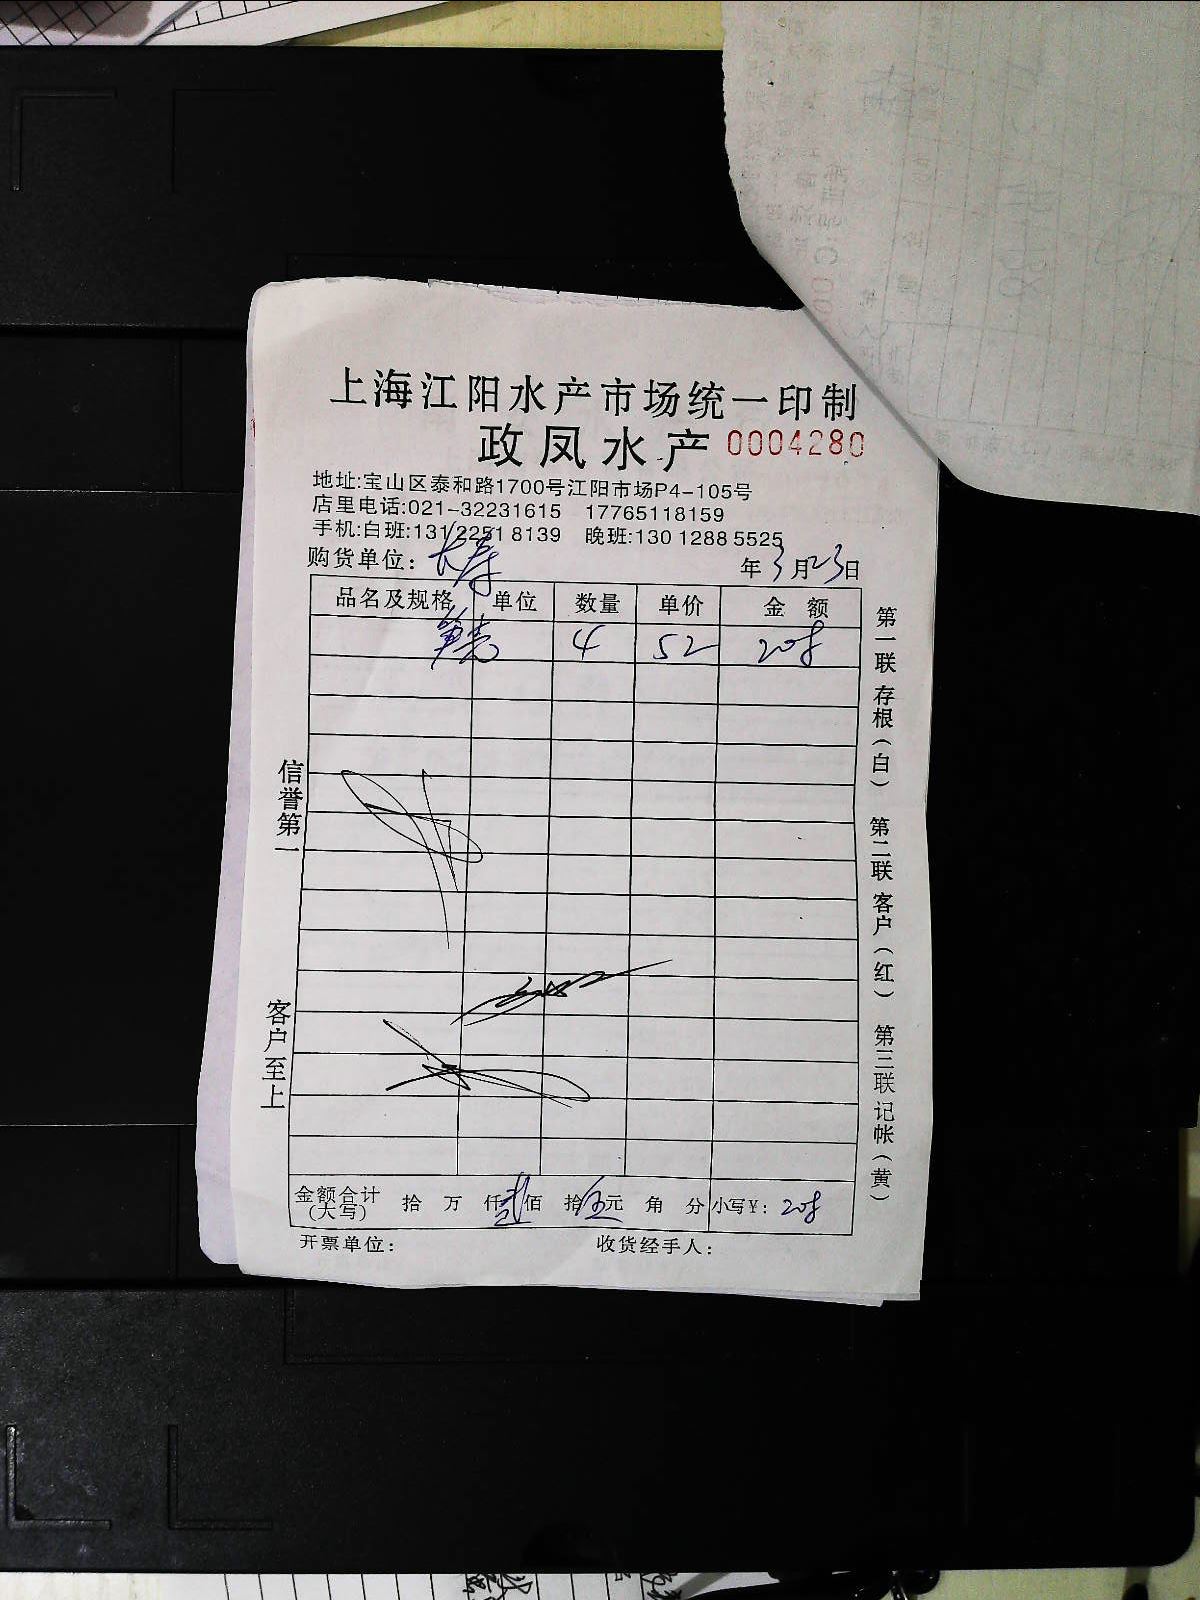 上海江阳水产市场统一印制
政凤水产 0004280
地址:宝山区泰和路1700号江阳市场P4-105号
店里电话:021-32231615 17765118159
手机:白班:131 2251 8139 晚班:130 1288 5525
购货单位: 长寿 年 3 月 23 日
品名及规格 单位 数量 单价 金额
4 52 208
信誉第一
客户至上
第一联 存根(白) 第二联 客户(红) 第三联 记帐(黄)
金额合计 拾 万 仟 贰 佰 拾 元 角 分 小写¥: 208
(大写)
开票单位: 收货经手人: